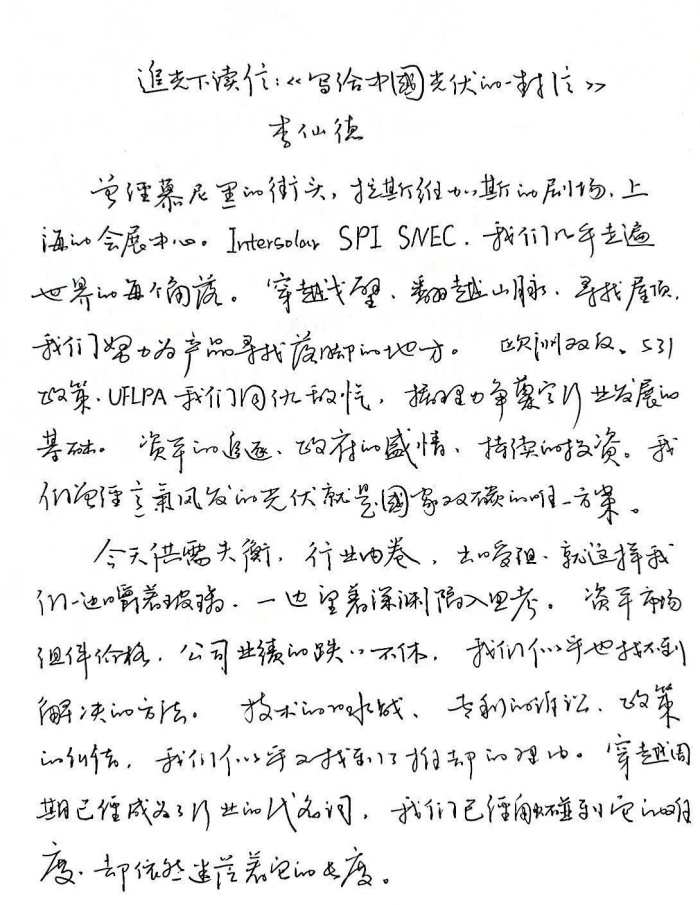 追光下读信：《写给中國光伏的一封信》
李仙德
曾经慕尼黑的街头，拉斯维加斯的剧场，上
海的会展中心。Intersolar SPI SNEC．我们几乎走遍
世界的每个角落。穿越戈壁、翻越山脉、寻找屋顶，
我们努力为产品寻找落脚的地方。欧洲双反、531
政策、UFLPA 我们同仇敌忾，据理力争奠定行业发展的
基础。资本的追逐、政府的盛情、持续的投资。我
们曾经意氣风发的光伏就是國家双碳的唯一方案。
今天供需失衡，行业内卷，出口受阻、就这样我
们一边嚼着玻璃、一边望着深渊陷入思考。资本市场
组件价格，公司业绩的跌跌不休，我们似乎也找不到
解决的方法。技术的口水战、专利的诉讼、政策
的纠结，我们似乎又找到了推却的理由。穿越周
期已经成为了行业的代名词，我们已经触碰到它的难
度，却依然迷茫着它的长度。